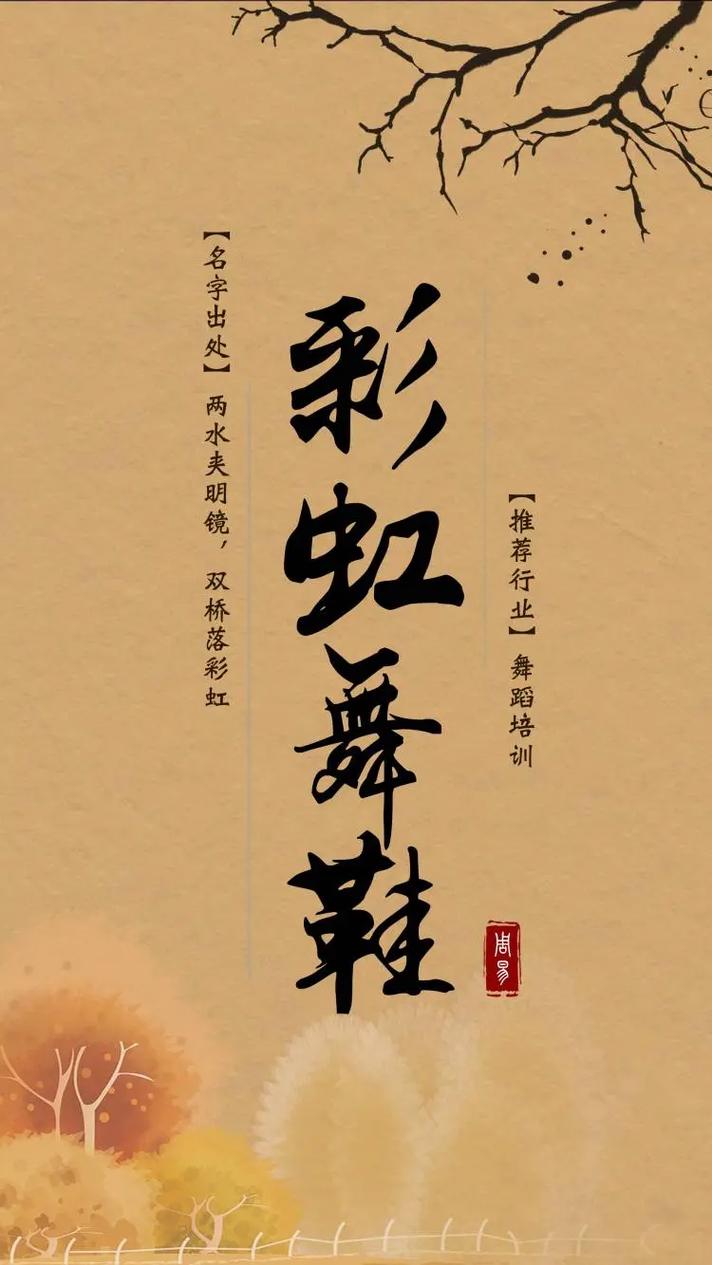 彩虹舞鞋
【名字出处】 两水夹明镜，双桥落彩虹
【推荐行业】 舞蹈培训
周易